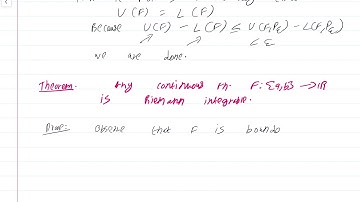 U(F) = L(F)
Because U(F) - L(F) ≤ U(F,Pε) - L(F,Pε)
< ε
we are done.
Theorem. Any continuous fn. F: [a,b] → IR
is Riemann integrable.
Proof: observe that F is bounde